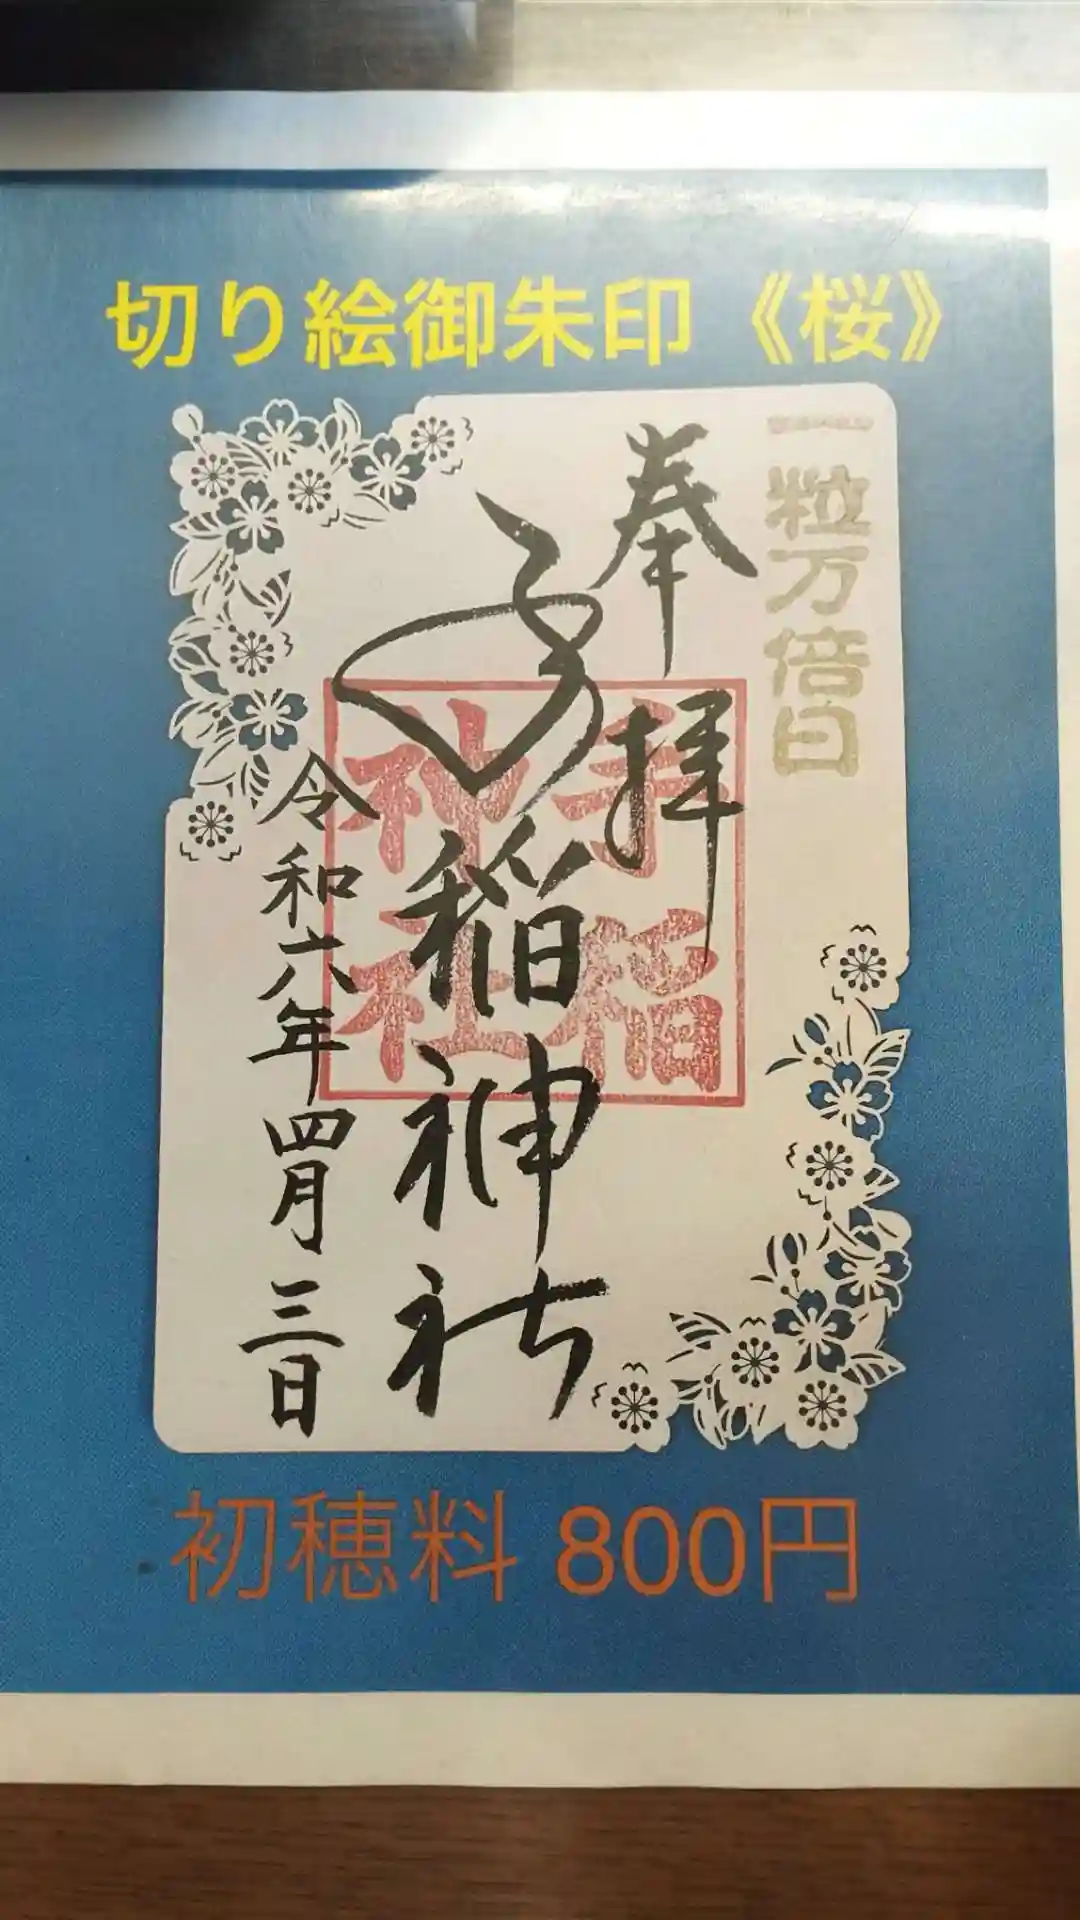 切り絵御朱印《桜》
一粒万倍日
奉拝
手稲神社
手稲神社
令和六年四月三日
初穂料 800円